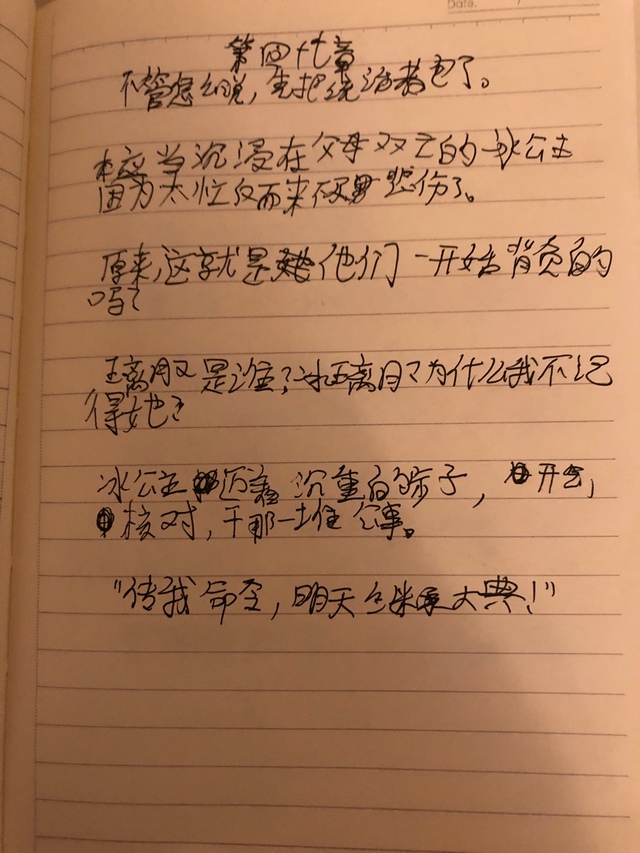 Date.
第四十七章
不管怎么说，先把统治者宫了。
本应当沉浸在父母双亡的冰公主
因为太忙反而来不及悲伤了。
原来，这就是他们一开始背负的
吗？
玉离月又是谁？冰玉离月？为什么我不记
得她？
冰公主迈着沉重的步子，开会，
核对，干那一堆公事。
"传我命令，明天 大典！"